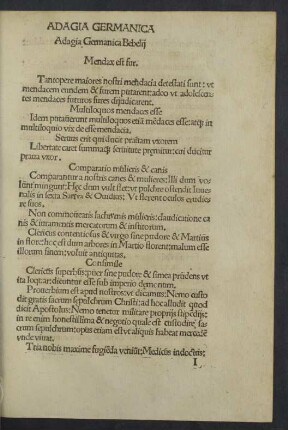 ADAGIA GERMANICA
Adagia Germanica Bebelij
Mendax est fur.
Tantopere maiores nostri mendacia detestati sunt: vt
mendacem eundem & furem putarent: adeo vt adolescen
tes mendaces futuros fures dijudicarent.
Multiloquos mendaces esse
Idem putauerunt multiloquos etiã mẽdaces esse: atq; in
multiloquio vix deesse mendacia.
Seruus erit qui ducit prauam vxorem
Libertate caret summaq; seruitute premitur: cui ducitur
praua vxor.
Comparatio mulieris & canis
Comparantur a nostris canes & mulieres: Illi dum vo
lunt mingunt: Hec dum vult flet: vt pulchre ostendit Iuue
nalis in sexta Satyra & Ouidius: Vt flerent oculos erudie
re suos.
Non commoueatis lachrimis mulieris: claudicatione ca
nis & iuramentis mercatorum & institorum.
Clericus contentiosus & virgo sine pudore & Martius
in flore: hoc est dum arbores in Martio florent: malum esse
illorum finem: voluit antiquitas.
Consimile
Clericus superbus: puer sine pudore & femina prudens vt
ita loquar: dicuntur esse sub imperio dementum.
Prouerbium est apud nostros: vt dicamus: Nemo custo
dit gratis sacrum sepulchrum Christi: ad hoc alludit quod
dicit Apostolus: Nemo tenetur militare proprijs stipẽdijs:
in re enim honestissima & negotio quale est custodire sa-
crum sepulchrum: opus etiam est vt aliquis habeat mercadẽ
vnde viuat.
Tria nobis maxime fugiẽda veniũt: Medicus indoctus:
I